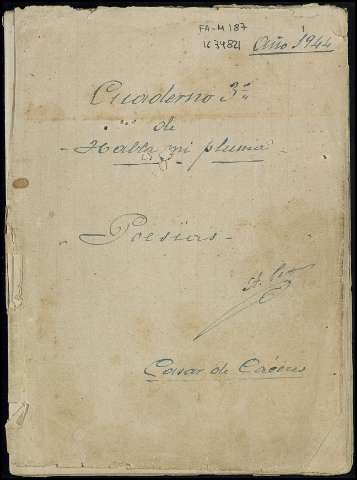 FA-M 187
1634821
Año 1944
Cuaderno 3º
de
-Habla mi pluma-
Poesías-
Casar de Cáceres